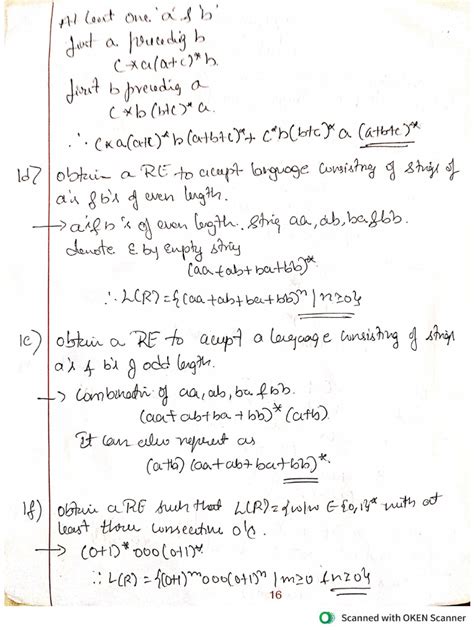 At least one 'a' & 'b'
first a preceding b
c*a(a+c)*b.
first b preceding a
c*b(b+c)*a.
∴ c*a(a+c)*b(a+b+c)*+ c*b(b+c)*a (a+b+c)*
1d) obtain a RE to accept language consisting of strings of
a's & b's of even length.
→ a's & b's of even length. String aa, ab, ba & bb.
denote ε by empty string
(aa+ab+ba+bb)*
∴ L(R)={(aa+ab+ba+bb)ⁿ | n≥0}
1e) obtain a RE to accept a language consisting of strings
a's & b's of odd length.
→ Combination of aa, ab, ba & bb.
(aa+ab+ba+bb)*(a+b).
It can also represent as
(a+b)(aa+ab+ba+bb)*.
1f) obtain a RE such that L(R)={w|w ∈ {0,1}* with at
least three consecutive 0's.
→ (0+1)*000(0+1)*
∴ L(R)={(0+1)ᵐ000(0+1)ⁿ | m≥0 & n≥0}
16
Scanned with OKEN Scanner